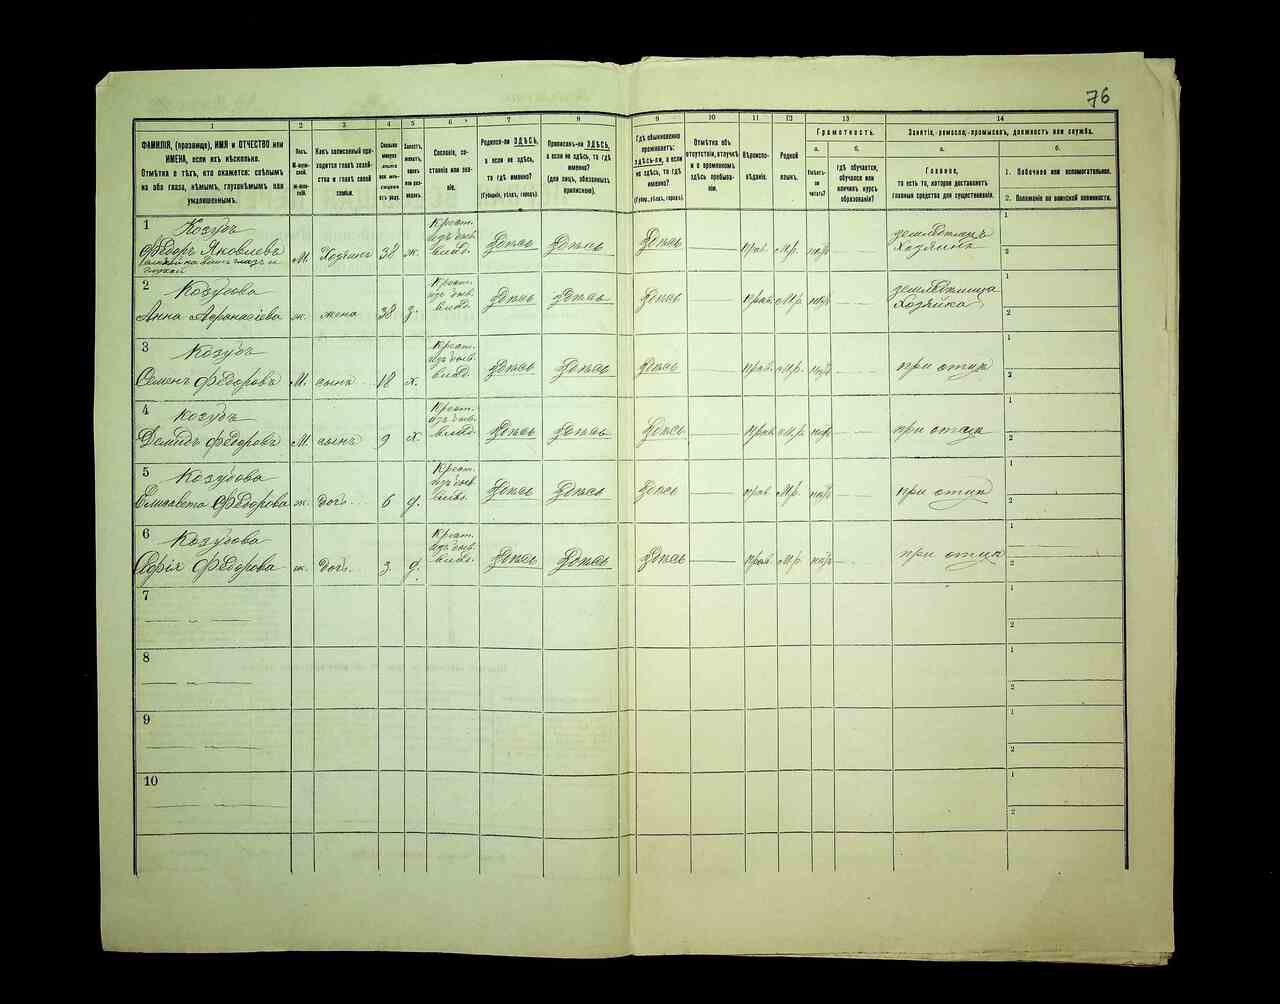 76
1 2 3 4 5 6 7 8 9 10 11 12 13 14
ФАМИЛІЯ, (прозвище), ИМЯ и ОТЧЕСТВО или
ИМЕНА, если ихъ нѣсколько.
Отмѣтка о тѣхъ, кто окажется: слѣпымъ
на оба глаза, нѣмымъ, глухонѣмымъ или
умалишеннымъ.
Полъ.
М-мужской.
Ж-женскій.
Какъ записанный приходится
главѣ хозяйства
и главѣ своей
семьи.
Сколько
минуло
лѣтъ
или мѣсяцевъ
отъ роду.
Холостъ,
женатъ,
вдовъ
или разведенъ.
Сословіе, состояніе
или званіе.
Родился-ли ЗДѢСЬ,
а если не здѣсь,
то гдѣ именно?
(Губернія, уѣздъ, городъ).
Приписанъ-ли ЗДѢСЬ,
а если не здѣсь, то гдѣ
именно?
(для лицъ, обязанныхъ
припискою).
Гдѣ обыкновенно
проживаетъ:
ЗДѢСЬ-ли, а если
не здѣсь, то гдѣ
именно?
(Губер., уѣздъ, городъ).
Отмѣтка объ
отсутствіи, отлучкѣ
и о временномъ
здѣсь пребываніи.
Вѣроисповѣданіе.
Родной
языкъ.
Грамотность.
а.
Умѣетъ-ли
читать?
б.
гдѣ обучается,
обучался или
кончилъ курсъ
образованія?
Занятіе, ремесло, промыселъ, должность или служба.
а.
Главное,
то есть то, которое доставляетъ
главныя средства для существованія.
б.
1. Побочное или вспомогательное.
2. Положеніе по воинской повинности.
1 Козубъ
Ѳедоръ Яковлевъ М. Хозяинъ 38 ж. Крест. изъ бывш. Здѣсь Здѣсь Здѣсь — Прав. М.р. — земледѣлецъ Хозяинъ 1 2
2 Козубова
Анна Афанасіева ж. жена 38 з. Крест. изъ бывш. Здѣсь Здѣсь Здѣсь — Прав. М.р. — Хозяйка 1 2
3 Козубъ
Семенъ Ѳедоровъ М. сынъ 18 х. Крест. изъ бывш. Здѣсь Здѣсь Здѣсь — Прав. М.р. — при отцѣ 1 2
4 Козубъ
Демидъ Ѳедоровъ М. сынъ 9 х. Крест. изъ бывш. Здѣсь Здѣсь Здѣсь — Прав. М.р. — при отцѣ 1 2
5 Козубова
Елисавета Ѳедорова ж. доч. 6 д. Крест. изъ бывш. Здѣсь Здѣсь Здѣсь — Прав. М.р. — при отцѣ 1 2
6 Козубова
Софія Ѳедорова ж. доч. 3 д. Крест. изъ бывш. Здѣсь Здѣсь Здѣсь — Прав. М.р. — при отцѣ 1 2
7 1 2
8 1 2
9 1 2
10 1 2